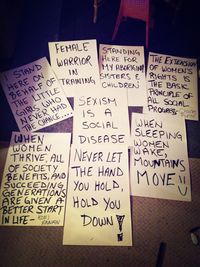 STAND
HERE ON
BEHALF OF
THE LITTLE
GIRLS WHO
NEVER HAD
THE CHANCE...
FEMALE
WARRIOR
IN
TRAINING
STANDING
HERE FOR
MY ABORIGINAL
SISTERS &
CHILDREN
THE EXTENSION
OF WOMEN'S
RIGHT IS
THE BASIC
PRINCIPLE OF
ALL SOCIAL
PROGRESS
SEXISM
IS A
SOCIAL
DISEASE
NEVER LET
THE HAND
YOU HOLD,
HOLD YOU
DOWN!
WHEN
SLEEPING
WOMEN
WAKE,
MOUNTAINS
MOVE
WHEN
WOMEN
THRIVE, ALL
OF SOCIETY
BENEFITS, AND
SUCCEEDING
GENERATIONS
ARE GIVEN A
BETTER START
IN LIFE-
KOFI
ANNAN